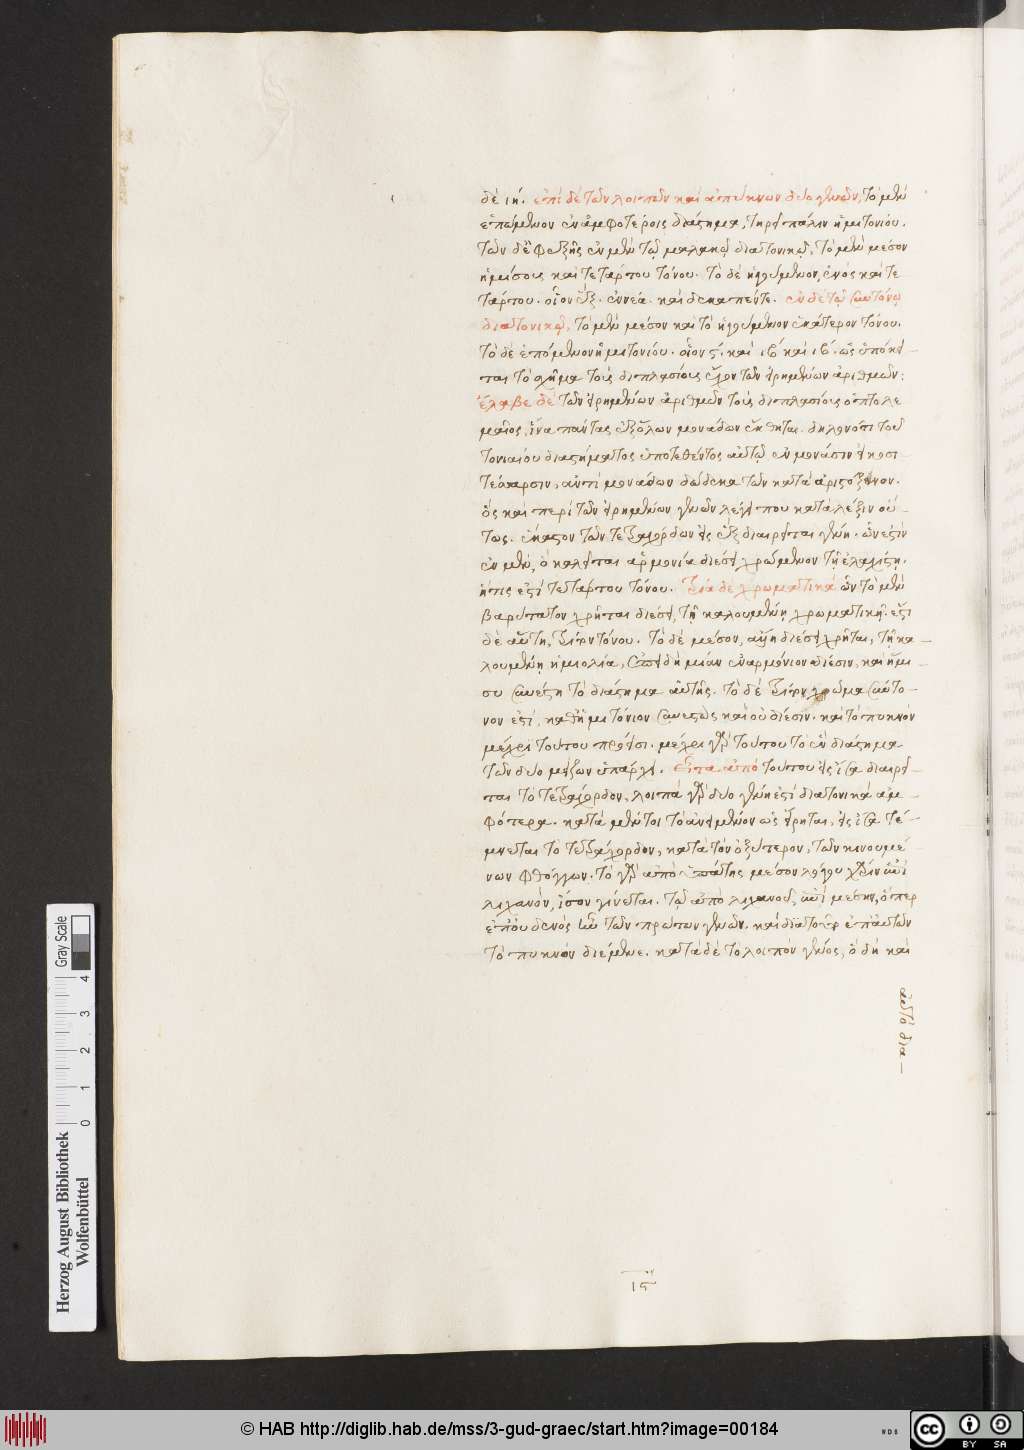 δὲ ιή. ἐπὶ δὲ τῶν λοιπῶν καὶ ἀπύκνων δύο γενῶν, τὸ μὲν
ἑπόμενον ἐν ἀμφοτέροις διάστημα, τηρεῖ πάλιν ἡμιτονίου.
τῶν δὲ ἐφεξῆς ἐν μὲν τῷ μαλακῷ διατονικῷ, τὸ μὲν μέσον
ἡμίσους καὶ τετάρτου τόνου. τὸ δὲ ἡγούμενον, ἑνὸς καὶ τε
τάρτου. οἷον ἓξ. ἐννέα. καὶ δεκαπέντε. ἐν δὲ τῷ συντόνῳ
διατονικῷ, τὸ μὲν μέσον καὶ τὸ ἡγούμενον ἑκάτερον τόνου.
τὸ δὲ ἑπόμενον ἡμιτονίου. οἷον ϛ. καὶ ιβ καὶ ιβ. ὡς ὑπόκει-
ται τὸ σχῆμα τοὺς διπλασίους ἔχον τῶν εἰρημένων ἀριθμῶν:
ἔλαβε δὲ τῶν εἰρημένων ἀριθμῶν τοὺς διπλασίους ὁ πτολε
μαῖος, ἵνα πάντας ἐξ ὅλων μονάδων ἐκθῆται. δηλονότι τοῦ
τονιαίου διαστήματος ὑποτεθέντος αὐτῷ ἐν μονάσιν εἰκοσι-
τέσσαρσιν, ἀντὶ μονάδων δώδεκα τῶν κατὰ ἀριστόξενον.
ὃς καὶ περὶ τῶν εἰρημένων γενῶν λέγει που κατὰ λέξιν οὕ-
τως. ἕκαστον τῶν τετραχόρδων εἰς ἓξ διαιρεῖται γένη. ὧν ἐστὶν
ἓν μὲν, ὃ καλεῖται ἁρμονία διέσει χρώμενον τῇ ἐλαχίστῃ.
ἥτις ἐστὶ τετάρτου τόνου. τρία δὲ χρωματικά ὧν τὸ μὲν
βαρύτατον χρῆται διέσει, τῇ καλουμένῃ χρωματικῇ. ἔστι
δὲ αὕτη, τρίτον τόνου. τὸ δὲ μέσον, διέσει χρῆται, τῇ κα-
λουμένῃ ἡμιολία, ἐπειδὴ μίαν ἐναρμόνιον δίεσιν, καὶ ἥμι-
συ συνέχη τὸ διάστημα αὐτῆς. τὸ δὲ τρίτον χρῶμα σύντο-
νον ἐστί, καθ' ἡμιτόνιον συνεχῶς καὶ οὐ δίεσιν. καὶ τὸ πυκνὸν
μέχρι τούτου πρόεισι. μέχρι γὰρ τούτου τὸ ἓν διάστημα
τῶν δύο μεῖζον ὑπάρχει. Εἶτα ἀπὸ τούτου εἰς ἴσα διαιρεῖ-
ται τὸ τετράχορδον, λοιπὰ γὰρ δύο γένη ἐστὶ διατονικὰ ἀμ-
φότερα. κατὰ μέντοι τὸ ἀνειμένον ὡς εἴρηται, εἰς ἴσα τέ-
μνεται τὸ τετράχορδον, κατὰ τὸν ὀξύτερον, τῶν κινουμέ
νων φθόγγων. τὸ γὰρ ἀπὸ ὑπάτης μέσον ἐπὶ
λιχανὸν, ἴσον γίνεται. τῷ ἀπὸ λιχανοῦ, ἐπὶ μέσην, ὅπερ
ἐπ' οὐδενὸς ἦν τῶν πρώτων γενῶν. καὶ διὰ τοῦτο ἐπ' αὐτῶν
τὸ πυκνὸν διέμενε. κατὰ δὲ τὸ λοιπὸν γένος, ὃ δὴ καὶ
αὐτὸ δια-
ις
Gray Scale
0 1 2 3 4
Herzog August Bibliothek
Wolfenbüttel
© HAB http://diglib.hab.de/mss/3-gud-graec/start.htm?image=00184
WDB
cc BY SA